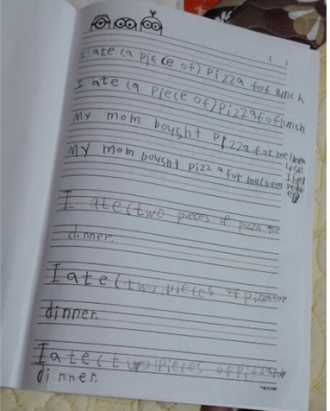 ( )
I ate (a piece of) pizza fof lunch
I ate (a piece of) pizza fof lunch
My mom bought pizza for me (becn
My mom bousht pizza for me (becn
use
I hel
ped
er)
I ate (two pieces of pizza for
dinner.
I ate (two pieces of pizza for
dinner.
I ate (two pieces of pizza for
dinner.